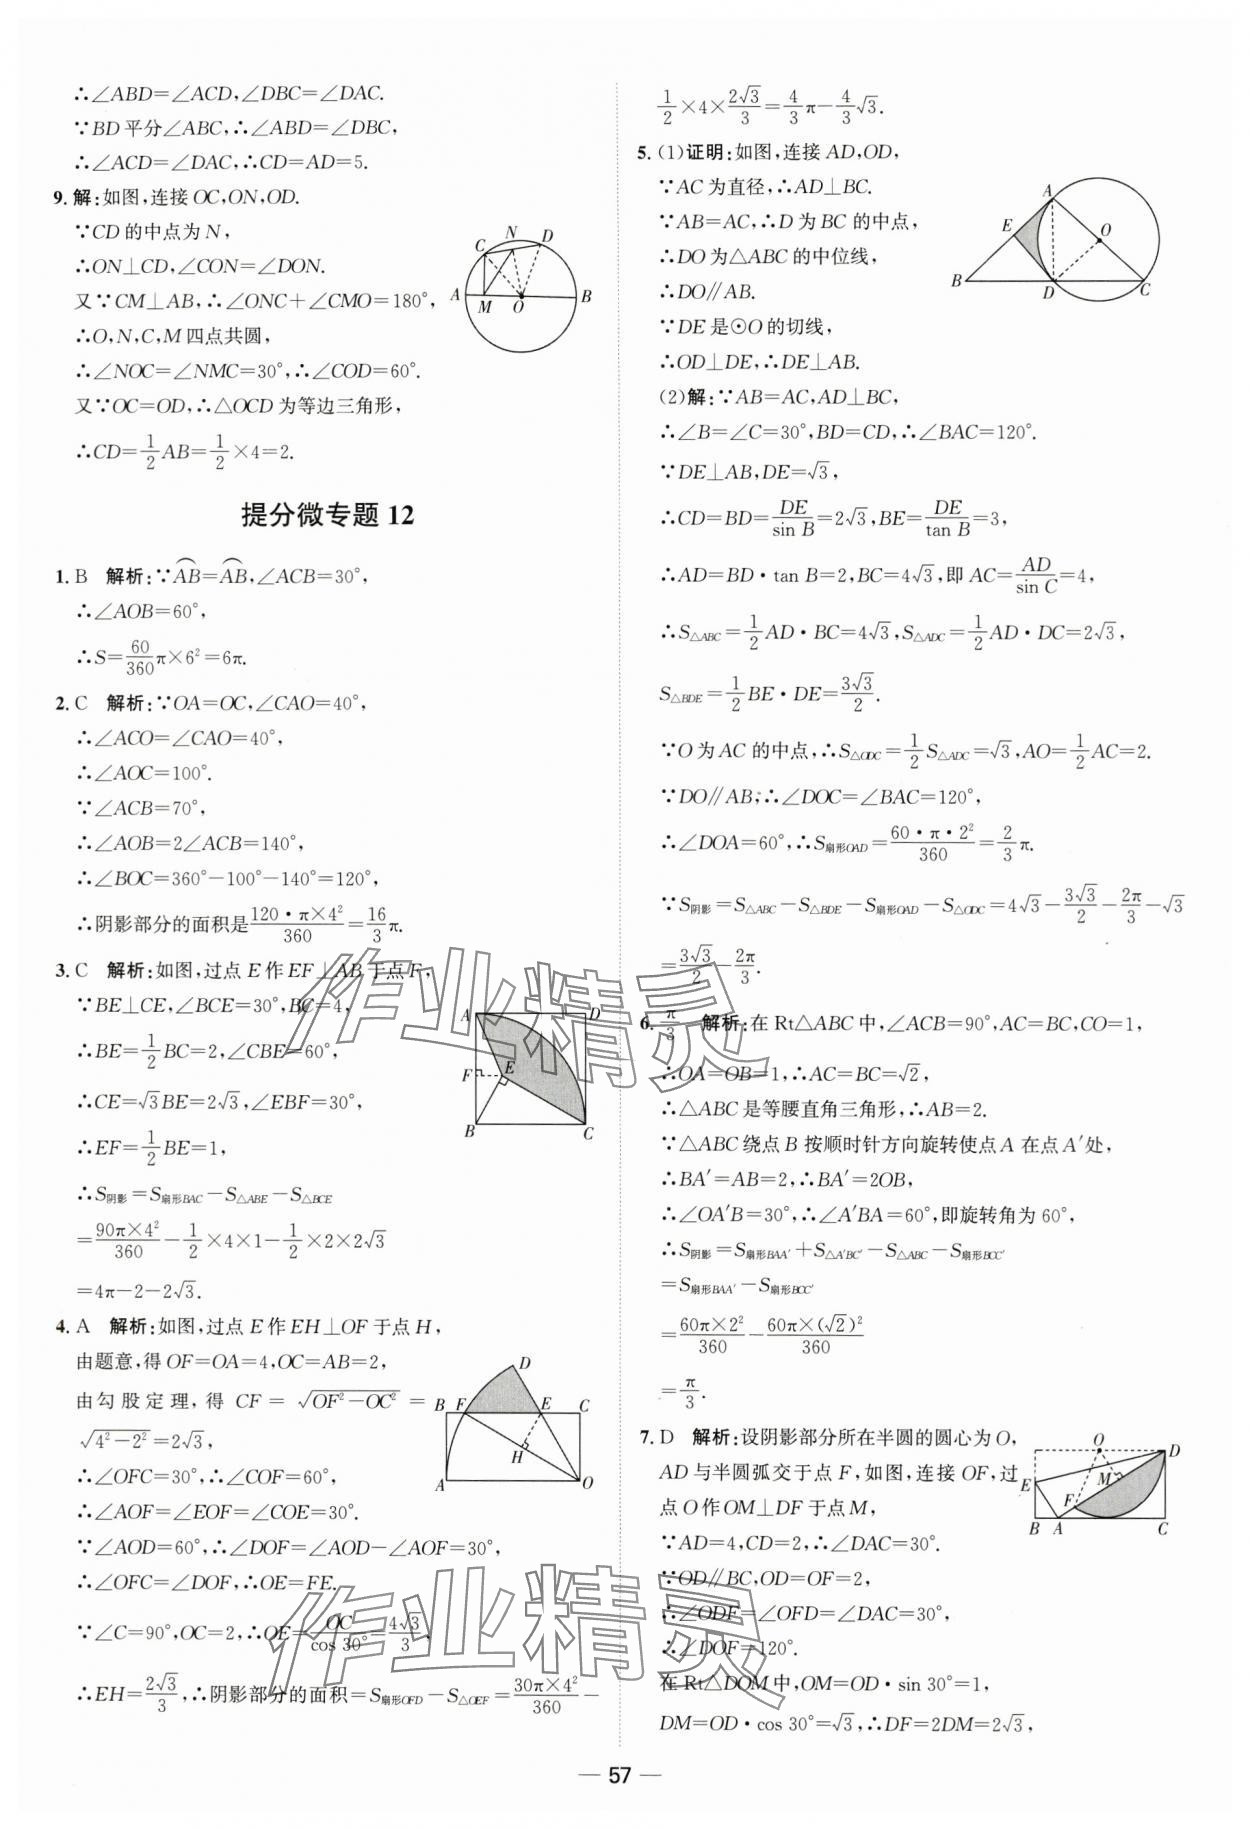 ∴∠ABD=∠ACD,∠DBC=∠DAC.
∵BD平分∠ABC,∴∠ABD=∠DBC,
∴∠ACD=∠DAC,∴CD=AD=5.
9.解:如图,连接OC,ON,OD.
∵CD的中点为N,
∴ON⊥CD,∠CON=∠DON.
又∵CM⊥AB,∴∠ONC+∠CMO=180°,
∴O,N,C,M四点共圆,
∴∠NOC=∠NMC=30°,∴∠COD=60°.
又∵OC=OD,∴△OCD为等边三角形,
∴CD=1/2AB=1/2×4=2.
C N D A M O B
提分微专题12
1.B 解析:∵⌒AB=⌒AB,∠ACB=30°,
∴∠AOB=60°,
∴S=60/360π×6²=6π.
2.C 解析:∵OA=OC,∠CAO=40°,
∴∠ACO=∠CAO=40°,
∴∠AOC=100°.
∵∠ACB=70°,
∴∠AOB=2∠ACB=140°,
∴∠BOC=360°-100°-140°=120°,
∴阴影部分的面积是120·π×4²/360=16/3π.
3.C 解析:如图,过点E作EF⊥AB于点F,
∵BE⊥CE,∠BCE=30°,BC=4,
∴BE=1/2BC=2,∠CBE=60°,
∴CE=√3BE=2√3,∠EBF=30°,
∴EF=1/2BE=1,
∴S阴影=S扇形BAC-S△ABE-S△BCE
=90π×4²/360-1/2×4×1-1/2×2×2√3
=4π-2-2√3.
A D F E B C
4.A 解析:如图,过点E作EH⊥OF于点H,
由题意,得OF=OA=4,OC=AB=2,
由勾股定理,得CF=√(OF²-OC²)=
√(4²-2²)=2√3,
∴∠OFC=30°,∴∠COF=60°,
∴∠AOF=∠EOF=∠COE=30°.
∵∠AOD=60°,∴∠DOF=∠AOD-∠AOF=30°,
∴∠OFC=∠DOF,∴OE=FE.
∵∠C=90°,OC=2,∴OE=OC/cos 30°=4√3/3,
∴EH=2√3/3,∴阴影部分的面积=S扇形OFD-S△OEF=30π×4²/360-
D B F E C H A O
1/2×4×2√3/3=4/3π-4/3√3.
5.(1)证明:如图,连接AD,OD,
∵AC为直径,∴AD⊥BC.
∵AB=AC,∴D为BC的中点,
∴DO为△ABC的中位线,
∴DO∥AB.
∵DE是⊙O的切线,
∴OD⊥DE,∴DE⊥AB.
A E O B D C
(2)解:∵AB=AC,AD⊥BC,
∴∠B=∠C=30°,BD=CD,∴∠BAC=120°.
∵DE⊥AB,DE=√3,
∴CD=BD=DE/sin B=2√3,BE=DE/tan B=3,
∴AD=BD·tan B=2,BC=4√3,即AC=AD/sin C=4,
∴S△ABC=1/2AD·BC=4√3,S△ADC=1/2AD·DC=2√3,
S△BDE=1/2BE·DE=3√3/2.
∵O为AC的中点,∴S△ODC=1/2S△ADC=√3,AO=1/2AC=2.
∵DO∥AB,∴∠DOC=∠BAC=120°,
∴∠DOA=60°,∴S扇形OAD=60·π·2²/360=2/3π.
∵S阴影=S△ABC-S△BDE-S扇形OAD-S△ODC=4√3-3√3/2-2π/3-√3
=3√3/2-2π/3.
6.π/3 解析:在Rt△ABC中,∠ACB=90°,AC=BC,CO=1,
∴OA=OB=1,∴AC=BC=√2,
∴△ABC是等腰直角三角形,∴AB=2.
∵△ABC绕点B按顺时针方向旋转使点A在点A′处,
∴BA′=AB=2,∴BA′=2OB,
∴∠OA′B=30°,∴∠A′BA=60°,即旋转角为60°,
∴S阴影=S扇形BAA′+S△A′BC′-S△ABC-S扇形BCC′
=S扇形BAA′-S扇形BCC′
=60π×2²/360-60π×(√2)²/360
=π/3.
7.D 解析:设阴影部分所在半圆的圆心为O,
AD与半圆弧交于点F,如图,连接OF,过
点O作OM⊥DF于点M,
∵AD=4,CD=2,∴∠DAC=30°.
∵OD∥BC,OD=OF=2,
∴∠ODF=∠OFD=∠DAC=30°,
∴∠DOF=120°.
在Rt△DOM中,OM=OD·sin 30°=1,
DM=OD·cos 30°=√3,∴DF=2DM=2√3,
O D E M F B A C
作业精灵
作业精灵
— 57 —